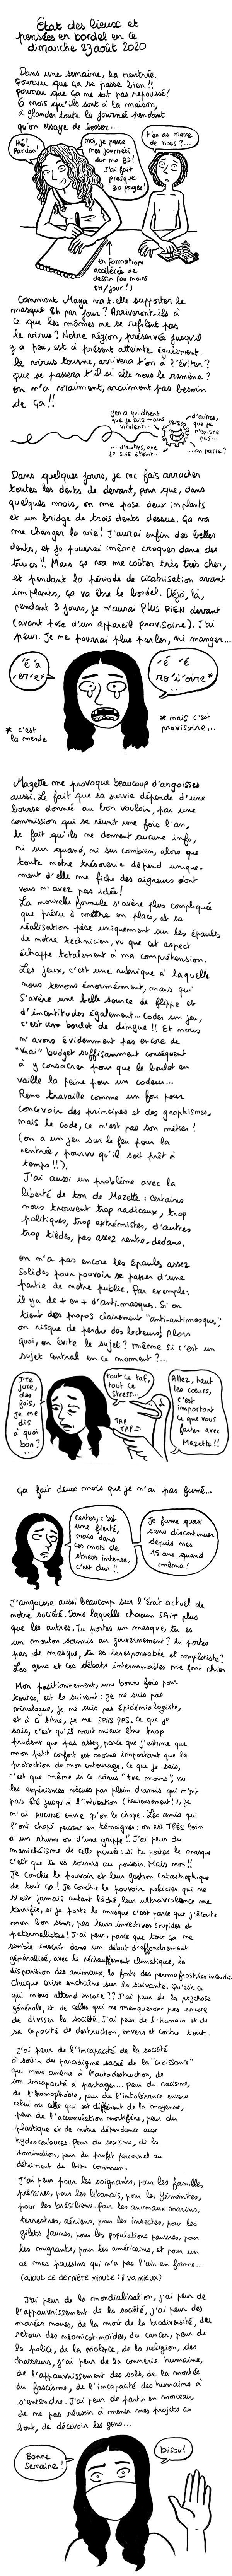 Etat des lieux et
pensées en bordel en ce
dimanche 23 août 2020
Dans une semaine, la rentrée.
Pourvu que ça se passe bien!!
pourvu que ça ne soit pas repoussé!
6 mois qu'ils sont à la maison,
à glander toute la journée pendant
qu'on essaye de bosser...
Hé!
Pardon!
moi, je passe
mes journées
sur ma BD!
J'ai fait
presque
30 pages!
t'en as marre
de nous?...
en formation
accélérée de
dessin (au moins
8H/jour!)
Comment Maya va t.elle supporter le
masque 8h par jour? Arriveront-ils à
ce que les mômes ne se refilent pas
le virus? Notre région, préservée jusqu'il
y a peu, est à présent atteinte également.
Le virus tourne, arrivera t'on à l'éviter?
que se passera t'il si elle nous le ramène?
on n'a vraiment, vraiment pas besoin
de ça!!
yen a qui disent
que je suis moins
virulent...
...d'autres, que
je suis éteint...
d'autres,
que je
n'existe
pas...
...on parie?
Dans quelques jours, je me fais arracher
toutes les dents de devant, pour que, dans
quelques mois, on me pose deux implants
et un bridge de trois dents dessus. Ça va
me changer la vie! J'aurai enfin des belles
dents, et je pourrai même croquer dans des
trucs!! Mais ça va me coûter très très cher,
et pendant la période de cicatrisation avant
implants, ça va être le bordel. Déjà, là,
pendant 3 jours, je n'aurai PLUS RIEN devant
(avant pose d'un appareil provisoire). J'ai
peur. Je ne pourrai plus parler, ni manger...
* c'est
la merde
* mais c'est
provisoire...
Mazette me provoque beaucoup d'angoisses
aussi. Le fait que sa survie dépende d'une
bourse donnée au bon vouloir, par une
commission qui se réunit une fois l'an,
le fait qu'ils ne donnent aucune info,
ni sur quand, ni sur combien, alors que
toute notre trésorerie dépend unique-
ment d'elle me fiche des aigreurs dont
vous n'avez pas idée!
La nouvelle formule s'avère plus compliquée
que prévu à mettre en place, et sa
réalisation pèse uniquement sur les épaules
de notre technicien, vu que cet aspect
échappe totalement à ma compréhension.
Les jeux, c'est une rubrique à laquelle
nous tenons énormément, mais qui
s'avère une belle source de flippe et
d'incertitudes également... Coder un jeu,
c'est un boulot de dingue!! Et nous
n'avons évidemment pas encore de
"vrai" budget suffisamment conséquent
à y consacrer pour que le boulot en
vaille la peine pour un codeur...
Remo travaille comme un fou pour
concevoir des principes et des graphismes,
mais le code, ce n'est pas son métier!
(on a un jeu sur le feu pour la
rentrée, pourvu qu'il soit prêt à
temps!!).
J'ai aussi un problème avec la
liberté de ton de Mazette: Certains
nous trouvent trop radicaux, trop
politiques, trop extrémistes, d'autres
trop tièdes, pas assez rentre-dedans.
on n'a pas encore les épaules assez
solides pour pouvoir se passer d'une
partie de notre public. Par exemple:
il ya de + en + d'anti-masques. Si on
tient des propos clairement "anti-antimasques",
on risque de perdre des lecteurs! Alors
quoi, on évite le sujet? même si c'est un
sujet central en ce moment?...
J'te
jure,
des
fois,
je me
dis
à quoi
bon?
...
tout ce taf,
tout ce
stress...
TAP
TAP
Allez, haut
les cœurs,
c'est
important
ce que vous
faites avec
Mazette!!
Ça fait deux mois que je n'ai pas fumé...
Certes, c'est
une fierté,
mais dans
ces mois de
stress intense,
c'est dur!!
Je fume quasi
sans discontinuer
depuis mes
15 ans quand
même!
J'angoisse aussi beaucoup sur l'état actuel de
notre société. Dans laquelle chacun SAIT plus
que les autres. Tu portes un masque, tu es
un mouton soumis au gouvernement? tu portes
pas de masque, tu es irresponsable et complotiste?
Les gens et les débats interminables me font chier.
Mon positionnement, une bonne fois pour
toutes, est le suivant: Je ne suis pas
virologue, je ne suis pas épidémiologiste,
et à ce titre, je ne SAIS PAS. Ce que je
sais, c'est qu'il vaut mieux être trop
prudent que pas assez, parce que j'estime que
mon petit confort est moins important que la
protection de mon entourage. Ce que je sais,
c'est que même si ce virus "tue moins", vu
les expériences vécues par plein d'amis qui n'ont
pas été jusqu'à l'intubation (heureusement!), je
n'ai AUCUNE envie qu'on le chope. Les amis qui
l'ont chopé peuvent en témoigner: on est TRÈS loin
d'un rhume ou d'une grippe!! J'ai peur du
manichéisme de cette pensée: si tu portes le masque
c'est que tu es soumis au pouvoir. Mais non!!
Je conchie le pouvoir et leur gestion catastrophique
de tout ça! Je conchie le pouvoir policier qui ne
s'est jamais autant lâché, leur ultraviolence me
terrifie, si je porte le masque c'est parce que j'écoute
mon bon sens, pas leurs invectives stupides et
paternalistes! J'ai peur, parce que tout ça me
semble inscrit dans un début d'effondrement
généralisé, avec le réchauffement climatique, la
disparition des animaux, la fonte des permafrost, les incendies
Chaque crise enchaîne sur la suivante. Qu'est-ce
qui nous attend encore??? J'ai peur de la psychose
générale, et de celles qui ne manqueront pas encore
de diviser la société. J'ai peur de l'humain et de
sa capacité de destruction, envers et contre tout...
J'ai peur de l'incapacité de la société
à sortir du paradigme sacré de la "croissance"
qui nous amène à l'autodestruction, de
son incapacité à partager. Peur du racisme,
de l'homophobie, peur de l'intolérance envers
celui ou celle qui est différent de la moyenne,
peur de l'accumulation mortifère, peur du
plastique et de notre dépendance aux
hydrocarbures. Peur du sexisme, de la
domination, peur du profit personnel au
détriment du bien commun.
J'ai peur pour les soignants, pour les familles
précaires, pour les libanais, pour les Yéménites,
pour les brésiliens. Pour les animaux marins,
terrestres, aériens, pour les insectes, pour les
gilets jaunes, pour les populations pauvres, pour
les migrants, pour les américains, et pour un
de mes poussins qui n'a pas l'air en forme...
(ajout de dernière minute : il va mieux)
J'ai peur de la mondialisation, j'ai peur de
l'appauvrissement de la société, j'ai peur des
marées noires, de la mort de la biodiversité, du
retour des néonicotinoïdes, du cancer, peur de
la police, de la violence, de la religion, des
chasseurs, j'ai peur de la connerie humaine,
de l'appauvrissement des sols, de la montée
du fascisme, de l'incapacité des humains à
s'entendre. J'ai peur de partir en morceau,
de ne pas réussir à mener mes projets au
bout, de décevoir les gens...
Bonne
semaine!
bisou!